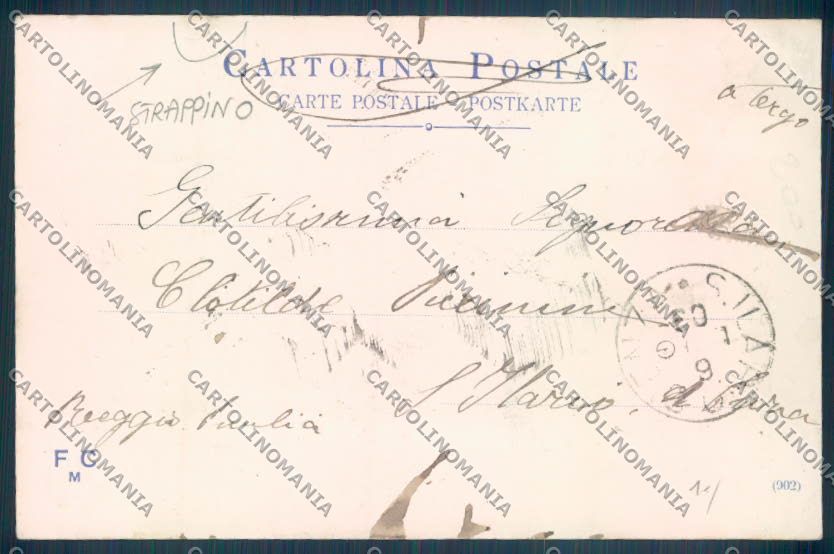 CARTOLINA POSTALE
CARTE POSTALE POSTKARTE
STRAPPINO
a tergo
Gentilissima Signora
Clotilde
S. Ilario d'Enza
Reggio Emilia
F C
M
(902)
CARTOLINOMANIA